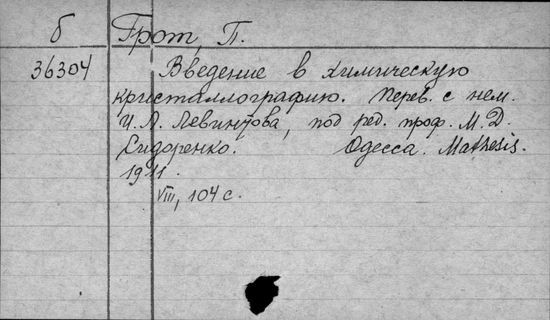 б Грот, П.
36304 Введение в химическую
кристаллографию. Перев. с нем.
И. Л. Левинтова, под ред. проф. М. Д.
Сидоренко. Одесса. Mathesis.
1911.
VIII, 104 с.